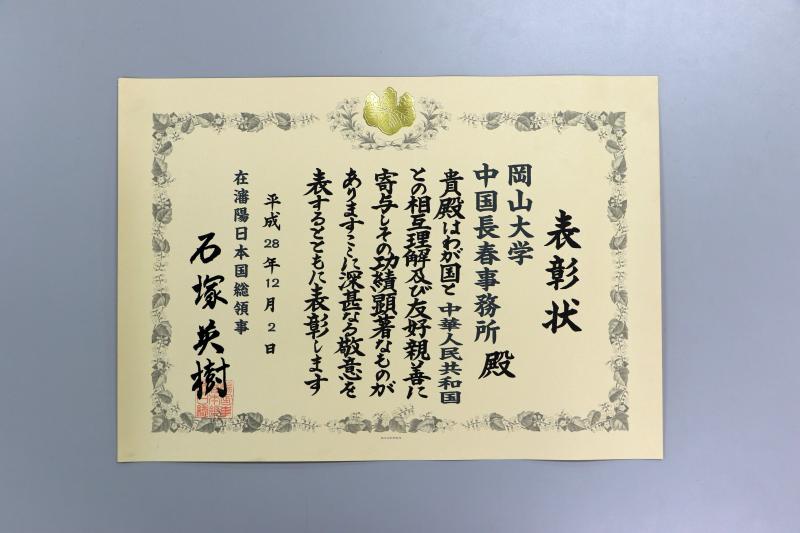 表彰状
岡山大学
中国長春事務所 殿
貴殿はわが国と中華人民共和国
との相互理解及び友好親善に
寄与しその功績顕著なものが
ありますここに深甚なる敬意を
表するとともに表彰します
平成28年12月2日
在瀋陽日本国総領事
石塚英樹